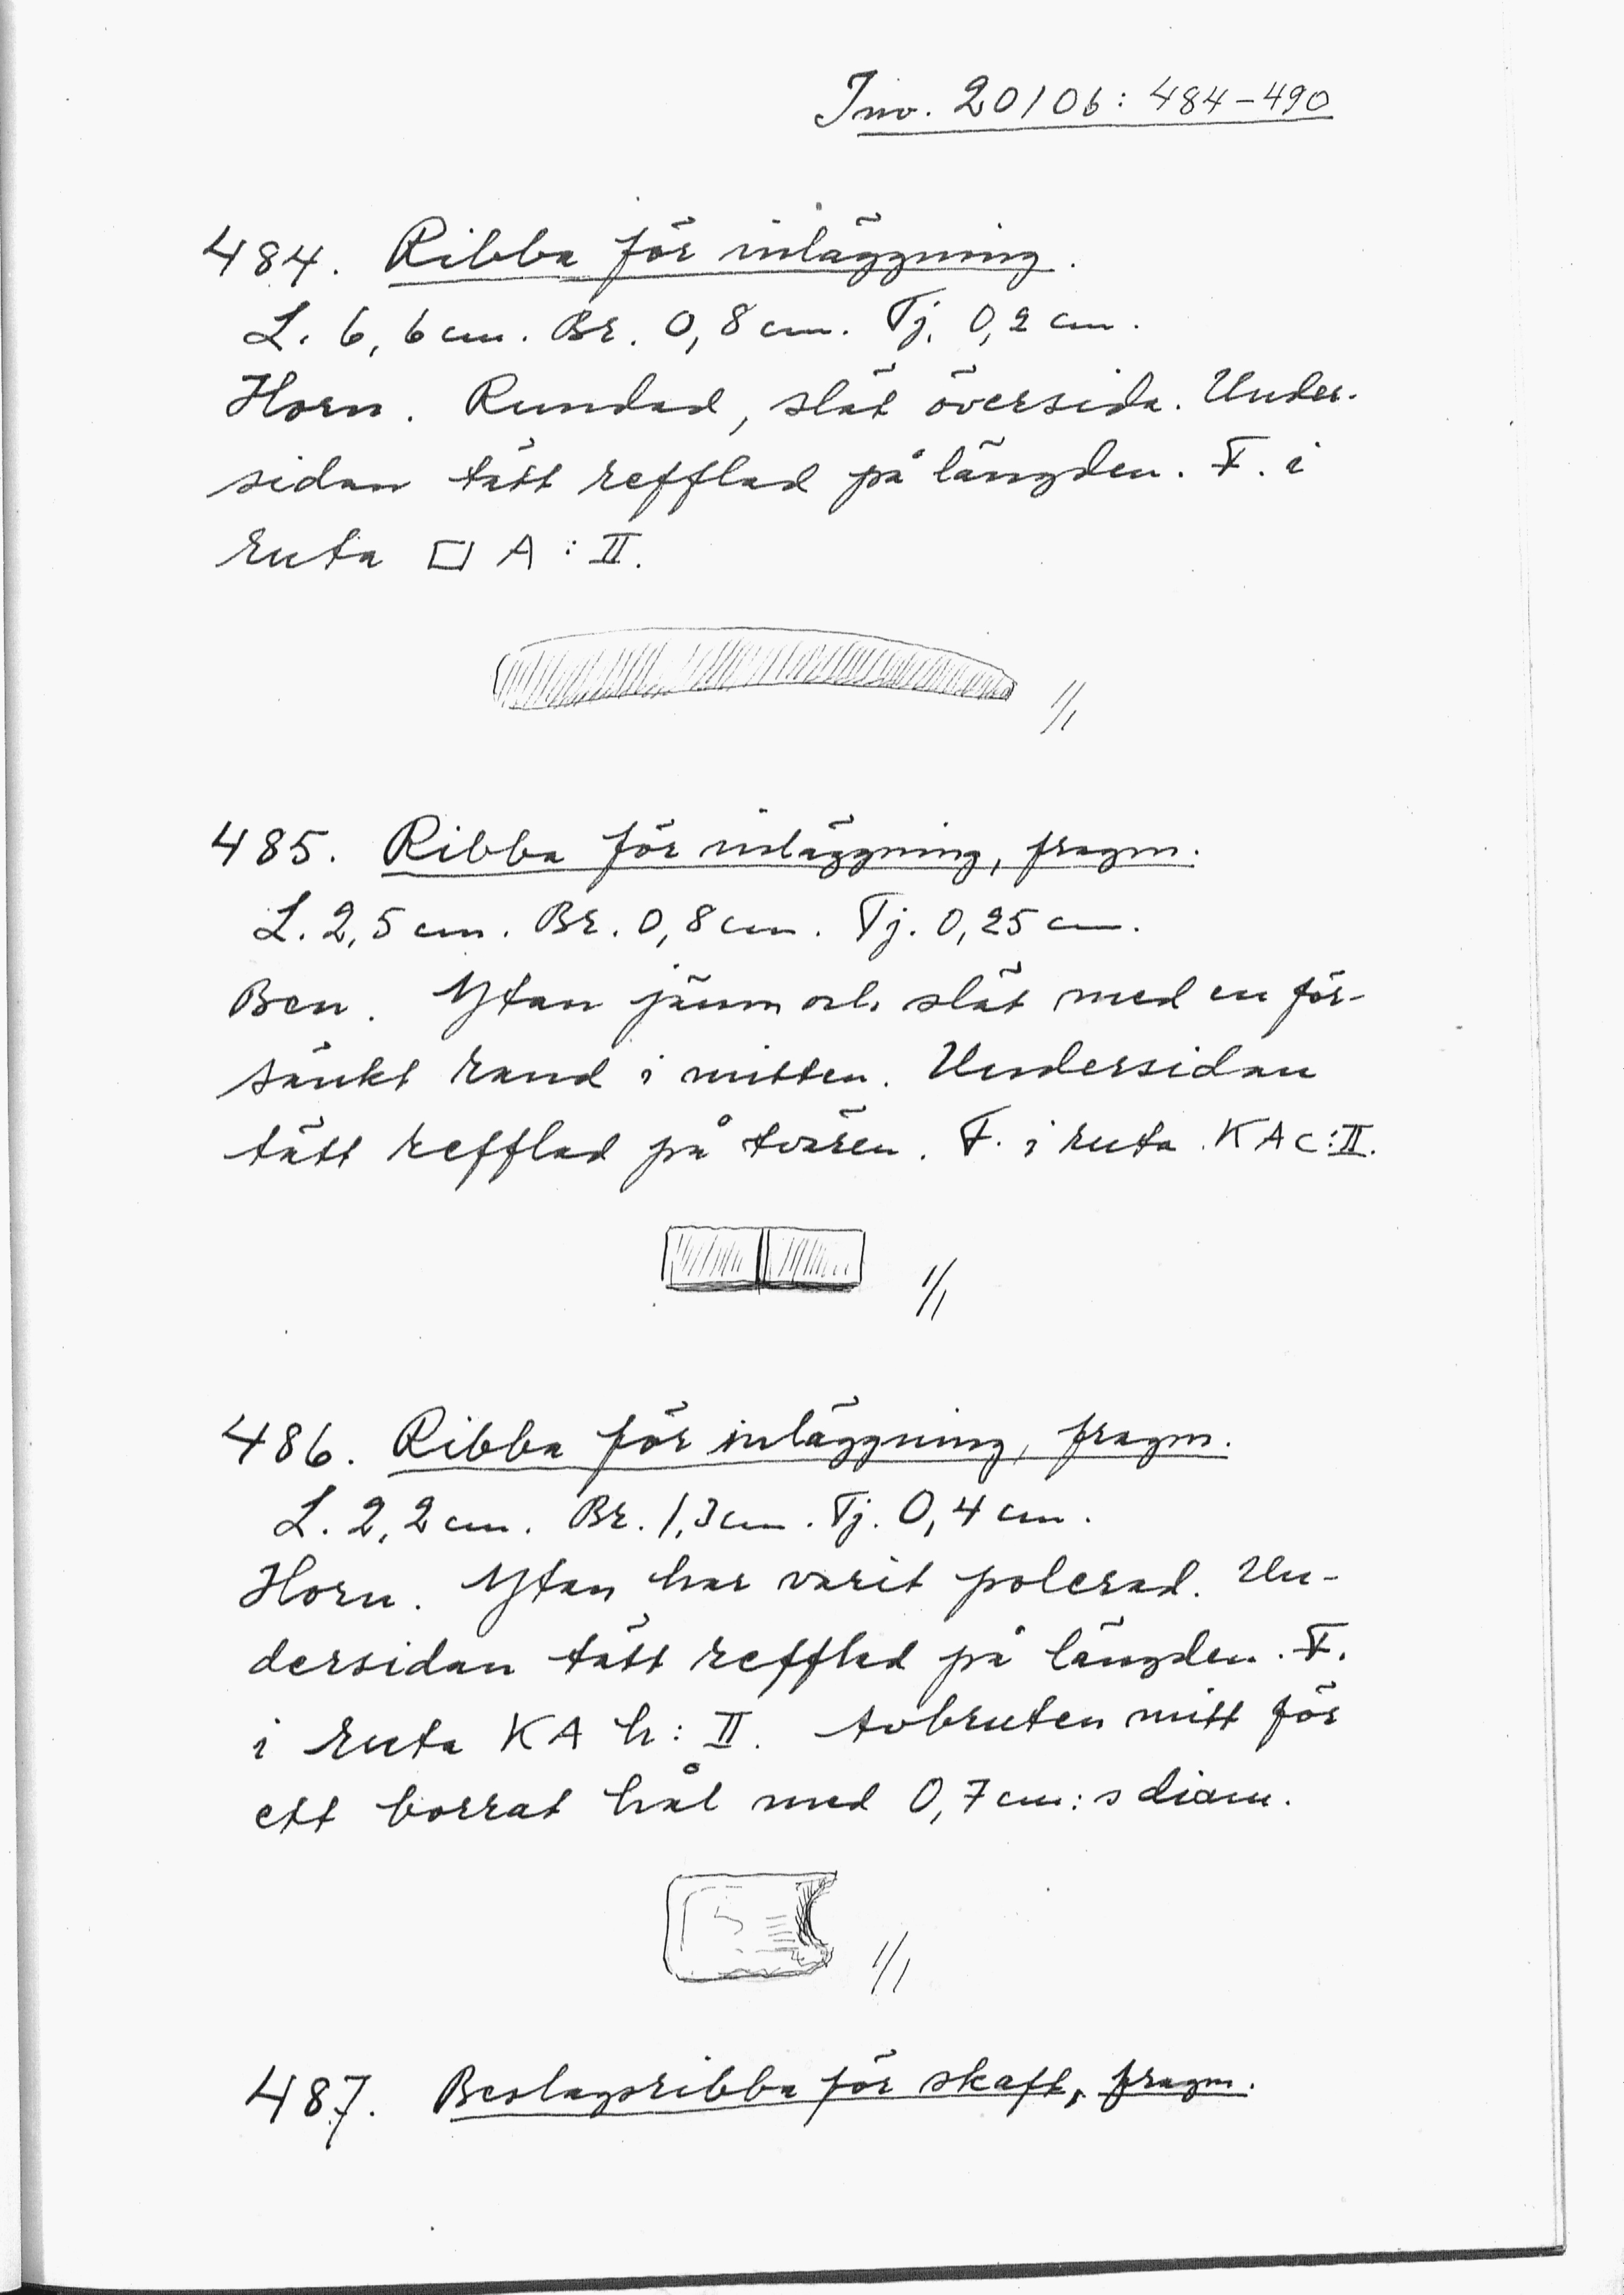 Inv. 20106: 484-490
484. Ribba för inläggning.
L. 6,6 cm. Br. 0,8 cm. Tj. 0,2 cm.
Horn. Rundad, slät översida. Under-
sidan tätt refflad på längden. F. i
ruta □ A : II.
1/1
485. Ribba för inläggning, fragm.
L. 2,5 cm. Br. 0,8 cm. Tj. 0,25 cm.
Ben. Ytan jämn och slät med en för-
sänkt rand i mitten. Undersidan
tätt refflad på tvären. F. i ruta KA c:II.
1/1
486. Ribba för inläggning, fragm.
L. 2,2 cm. Br. 1,3 cm. Tj. 0,4 cm.
Horn. Ytan har varit polerad. Un-
dersidan tätt refflad på längden. F.
i ruta KA h: II. Avbruten mitt för
ett borrat hål med 0,7 cm:s diam.
1/1
487. Beslagsribba för skaft, fragm.